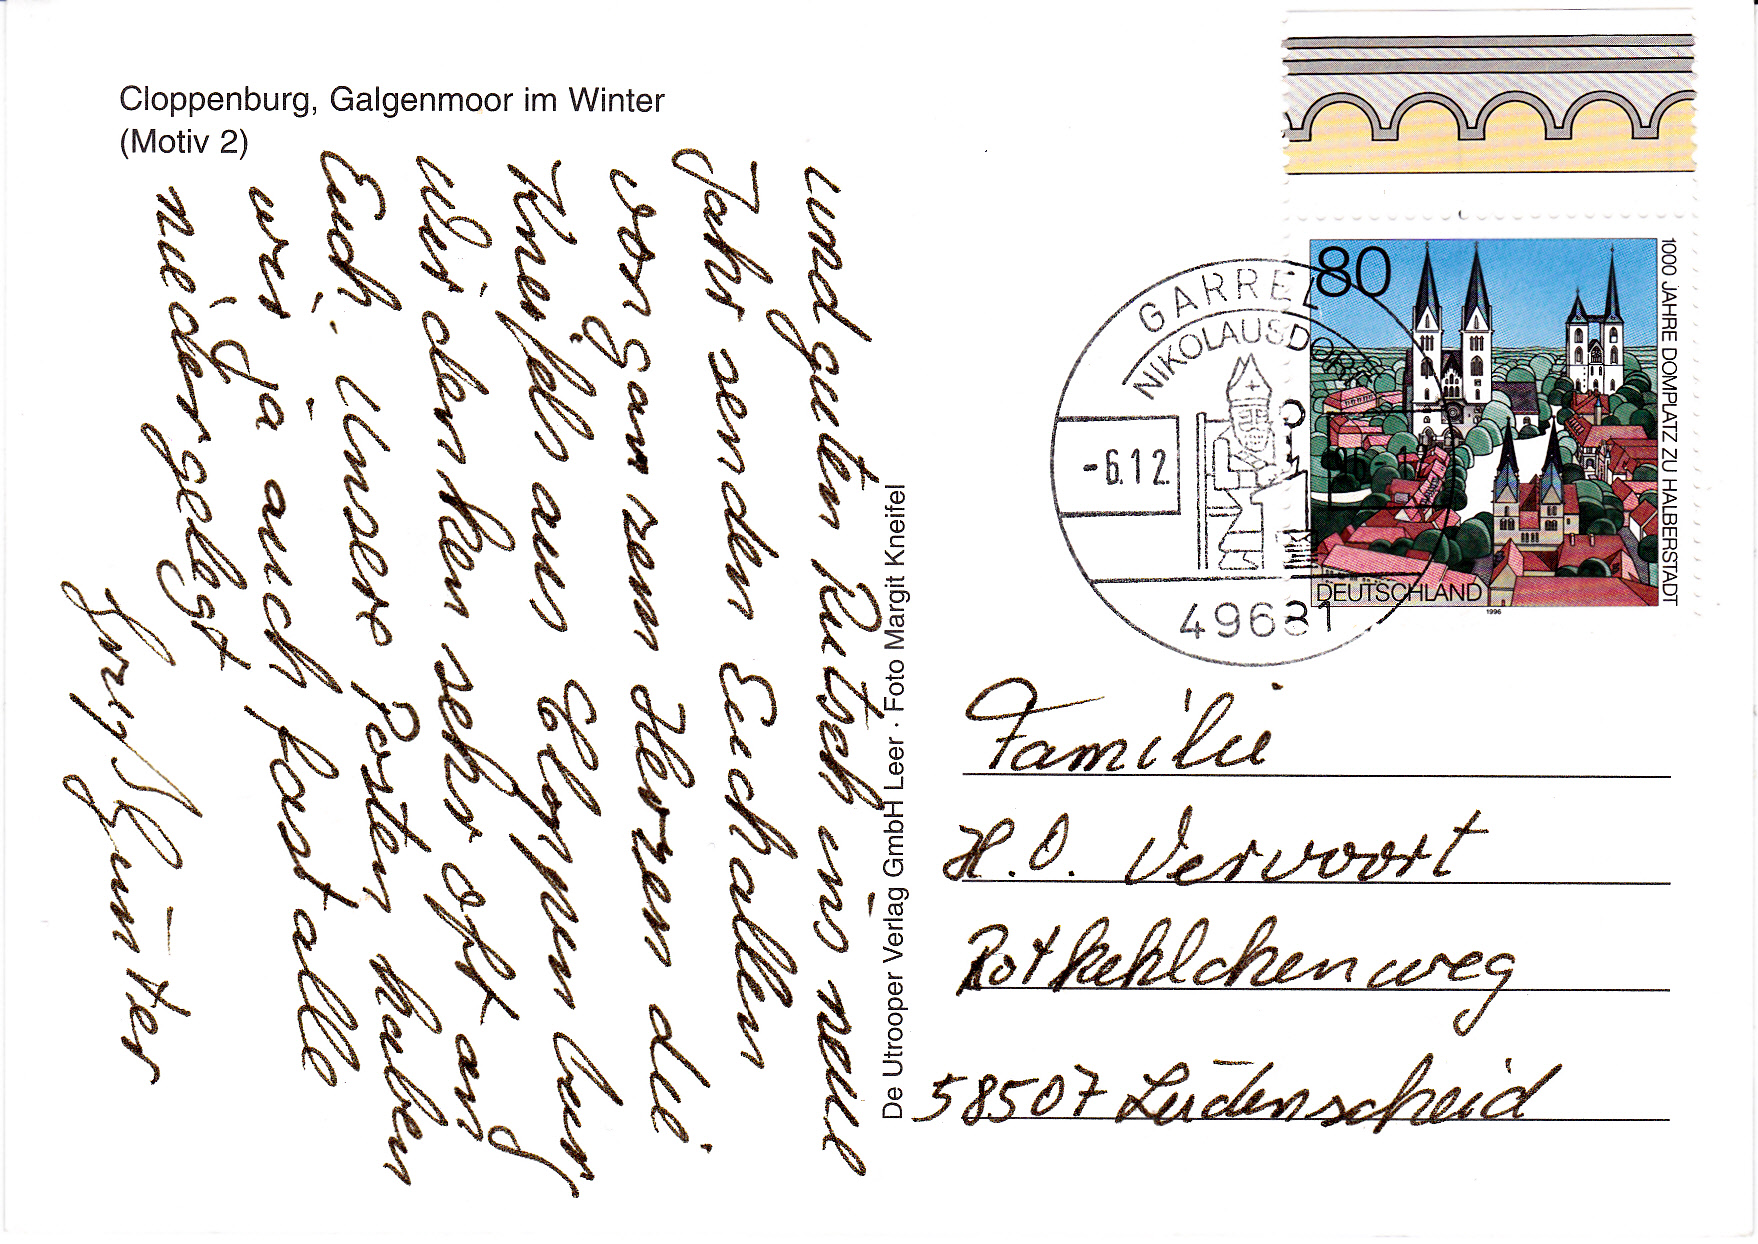 Cloppenburg, Galgenmoor im Winter
(Motiv 2)
und guten Rutsch ins neue
Jahr senden Euch allen
von ganzem Herzen die
Kneifels aus Cloppenburg
Wir denken sehr oft an
Euch. Unsere Posten haben
wir ja auch fast alle
niedergelegt
Günter
De Utrooper Verlag GmbH Leer · Foto Margit Kneifel
80
1000 JAHRE DOMPLATZ ZU HALBERSTADT
DEUTSCHLAND
1996
GARREL
NIKOLAUSDORF
-6.12.
49681
Familie
H.O. Vervoort
Rotkehlchenweg
58507 Lüdenscheid